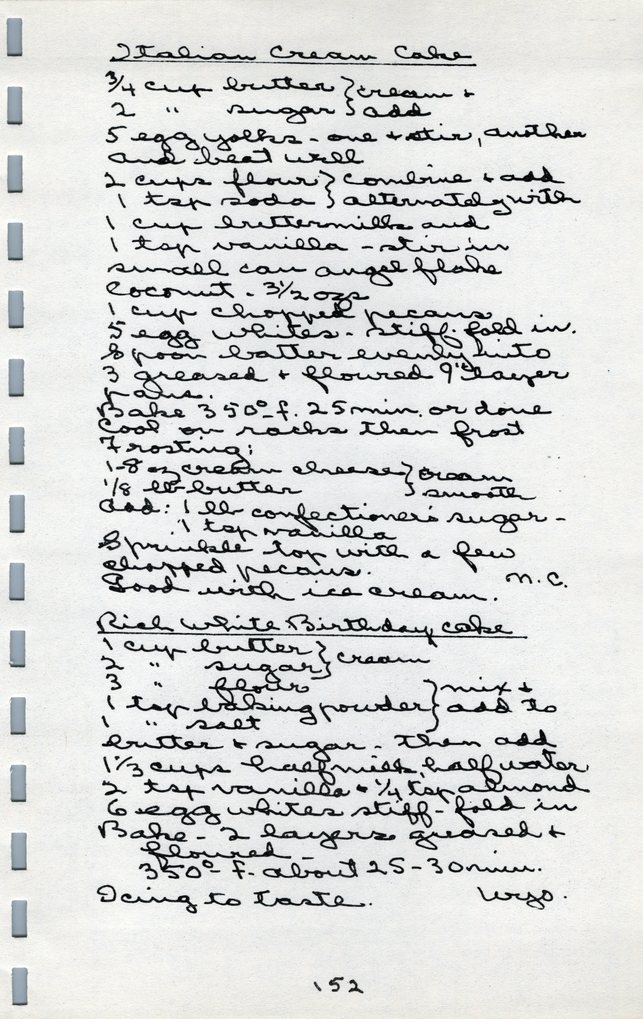 Italian Cream Cake
3/4 cup butter } cream +
2 " sugar } add
5 egg yolks - one + stir, another
and beat well
2 cups flour } combine + add
1 tsp soda } alternately with
1 cup buttermilk and
1 tsp vanilla - stir in
small can angel flake
coconut - 3 1/2 ozs
1 cup chopped pecans
5 egg whites - stiff - fold in.
Spoon batter evenly into
3 greased + floured 9" layer
pans.
Bake 350° f. 25 min. or done
Cool on racks then frost
Frosting:
1-8 oz cream cheese } cream
1/8 lb butter } smooth
Add: 1 lb confectioner's sugar -
1 tsp vanilla
Sprinkle top with a few
chopped pecans.
Good with ice cream. N.C.
Rich White Birthday Cake
1 cup butter } cream
2 " sugar }
3 " flour } mix +
1 tsp baking powder } add to
1 " salt
butter + sugar - then add
1 1/3 cups half milk, half water
2 tsp vanilla + 1/4 tsp almond
6 egg whites stiff - fold in
Bake - 2 layers greased +
floured -
350° f. about 25-30 min.
Icing to taste. Wyo.
152